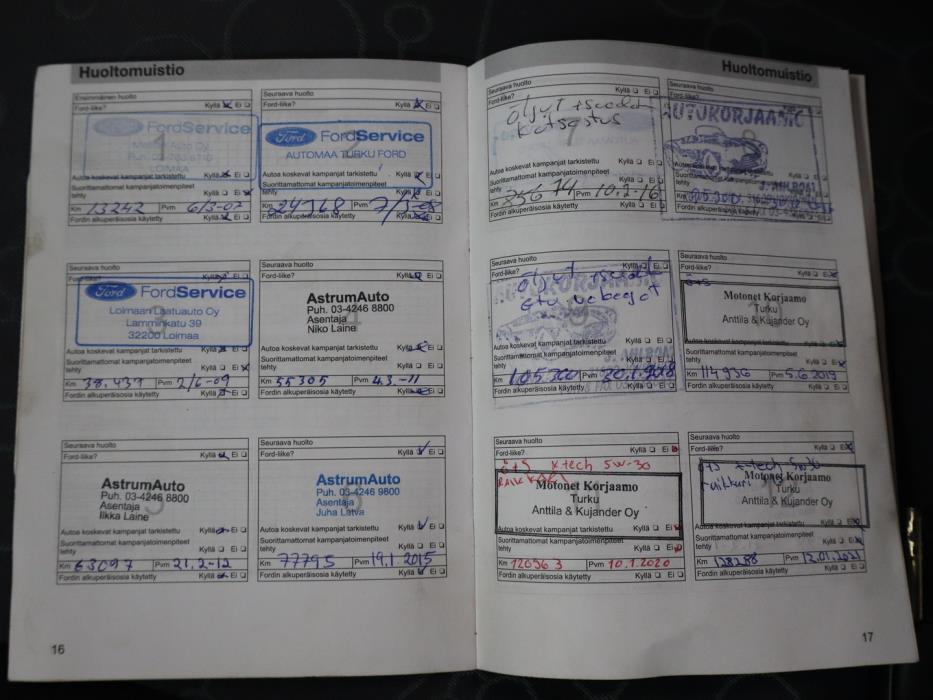 Huoltomuistio
Ensimmäinen huolto
Ford-liike? Kyllä Ei
FordService
LOIMAA
Autoa koskevat kampanjat tarkistettu Kyllä Ei
Suorittamattomat kampanjatoimenpiteet
tehty Kyllä Ei
Km 13242 Pvm 6/3-07
Fordin alkuperäisosia käytetty Kyllä Ei
Seuraava huolto
Ford-liike? Kyllä Ei
2
Ford FordService
AUTOMAA TURKU FORD
Autoa koskevat kampanjat tarkistettu Kyllä Ei
Suorittamattomat kampanjatoimenpiteet
tehty Kyllä Ei
Km 24768 Pvm 7/3-08
Fordin alkuperäisosia käytetty Kyllä Ei
Seuraava huolto
Ford-liike? Kyllä Ei
3
Ford FordService
Loimaan Laatuauto Oy
Lamminkatu 39
32200 Loimaa
Autoa koskevat kampanjat tarkistettu Kyllä Ei
Suorittamattomat kampanjatoimenpiteet
tehty Kyllä Ei
Km 38.437 Pvm 2/6-09
Fordin alkuperäisosia käytetty Kyllä Ei
Seuraava huolto
Ford-liike? Kyllä Ei
AstrumAuto
Puh. 03-4246 8800
Asentaja
Niko Laine
Autoa koskevat kampanjat tarkistettu Kyllä Ei
Suorittamattomat kampanjatoimenpiteet
tehty Kyllä Ei
Km 55305 Pvm 4.3.-11
Fordin alkuperäisosia käytetty Kyllä Ei
Seuraava huolto
Ford-liike? Kyllä Ei
5
AstrumAuto
Puh. 03-4246 8800
Asentaja
Ilkka Laine
Autoa koskevat kampanjat tarkistettu Kyllä Ei
Suorittamattomat kampanjatoimenpiteet
tehty Kyllä Ei
Km 63097 Pvm 21.2-12
Fordin alkuperäisosia käytetty Kyllä Ei
Seuraava huolto
Ford-liike? Kyllä Ei
AstrumAuto
Puh. 03-4246 9800
Asentaja
Juha Latva
Autoa koskevat kampanjat tarkistettu Kyllä Ei
Suorittamattomat kampanjatoimenpiteet
tehty Kyllä Ei
Km 77795 Pvm 19.1 2015
Fordin alkuperäisosia käytetty Kyllä Ei
16
Huoltomuistio
Seuraava huolto
Ford-liike? Kyllä Ei
7
öljyt + suodat
katsastus
Autoa koskevat kampanjat tarkistettu Kyllä Ei
Suorittamattomat kampanjatoimenpiteet
tehty Kyllä Ei
Km Pvm 10.2-16
Fordin alkuperäisosia käytetty Kyllä Ei
Seuraava huolto
Ford-liike? Kyllä Ei
AUTOKORJAAMO
Kyllä Ei
Fordin alkuperäisosia käytetty Kyllä Ei
Seuraava huolto
Ford-liike? Kyllä Ei
öljyt
AUTOKORJAAMO
Autoa koskevat kampanjat tarkistettu Kyllä Ei
Suorittamattomat kampanjatoimenpiteet
tehty Kyllä Ei
Km 105300 Pvm 20.1.2018
Fordin alkuperäisosia käytetty Kyllä Ei
Seuraava huolto
Ford-liike? Kyllä Ei
ö+s
Motonet Korjaamo
Turku
Anttila & Kujander Oy
Autoa koskevat kampanjat tarkistettu Kyllä Ei
Suorittamattomat kampanjatoimenpiteet
tehty Kyllä Ei
Km 114936 Pvm 5.6.2019
Fordin alkuperäisosia käytetty Kyllä Ei
Seuraava huolto
Ford-liike? Kyllä Ei
ö+S Xtech 5w-30
Motonet Korjaamo
Turku
Anttila & Kujander Oy
Autoa koskevat kampanjat tarkistettu Kyllä Ei
Suorittamattomat kampanjatoimenpiteet
tehty Kyllä Ei
Km 120963 Pvm 10.1.2020
Fordin alkuperäisosia käytetty Kyllä Ei
Seuraava huolto
Ford-liike? Kyllä Ei
ö+s x-tech 5w30
Motonet Korjaamo
Turku
Anttila & Kujander Oy
Autoa koskevat kampanjat tarkistettu Kyllä Ei
Suorittamattomat kampanjatoimenpiteet
tehty Kyllä Ei
Km 128288 Pvm 12.01.2021
Fordin alkuperäisosia käytetty Kyllä Ei
17